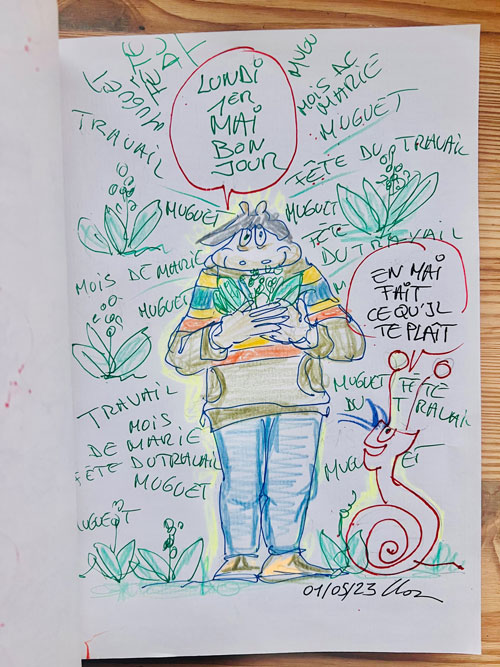 LUNDI
1ER
MAI
BON
JOUR
MUGUET
FÊTE
MUGU
MOIS DE
MARIE
MUGUET
TRAVAIL
FÊTE DU TRAVAIL
MUGUET
MUGUET
FÊTE
DU TRAVAIL
MOIS DE MARIE
MUGUET
EN MAI
FAIT
CE QU'IL
TE PLAÎT
TRAVAIL
MOIS
DE MARIE
FÊTE DU TRAVAIL
MUGUET
MUGUET FÊTE
DU TRAVAIL
MUGUET
UGUET
01/05/23